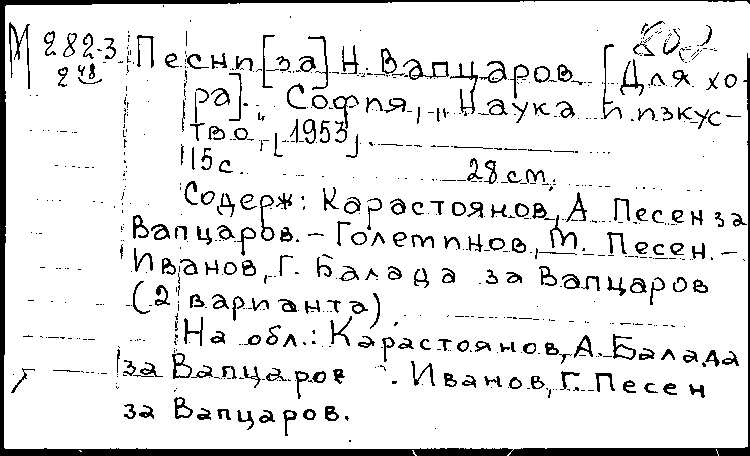 М 282-3 Песни [за] Н. Вапцаров. [Для хо-
2 48
ра]. София, "Наука и изкус-
тво", [1953].
15 с. 28 см.
Содерж: Карастоянов, А Песен за
Вапцаров. - Големинов, М. Песен. -
Иванов, Г. Балада за Вапцаров
(2 варианта)
На обл.: Карастоянов, А. Балада
за Вапцаров . Иванов, Г. Песен
за Вапцаров.